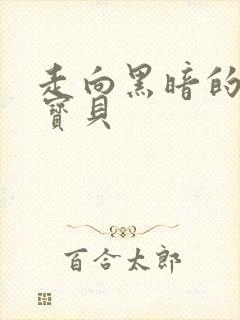 走向黑暗的
寶貝
百合太郎